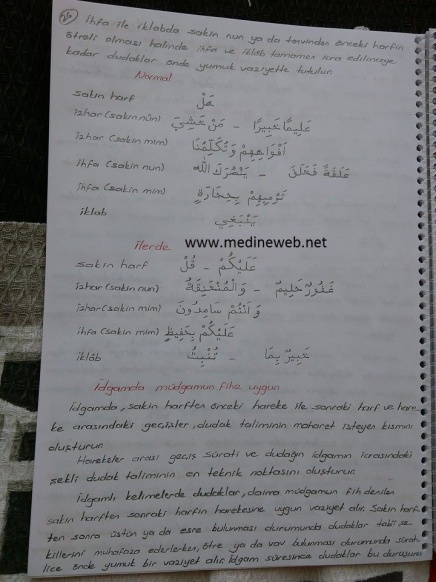 24 İhfa ile iklabda sakin nun ya da tenvinden önceki harfin
ötreli olması halinde ihfa ve iklâb tamamen icra edilinceye
kadar dudaklar önde yumuk vaziyette tutulur.
Normal
sakin harf هَلْ
izhar (sakin nûn) عَلِيمًا خَبِيرًا - مَنْ خَشِيَ
izhar (sakin mim) اَفْوَاهِهِمْ وَتُكَلِّمُنَا
ihfa (sakin nun) عَلَقَةً فَخَلَقَ - يَنْصُرَكَ اللّٰهُ
ihfa (sakin mim) تَرْمِيهِمْ بِحِجَارَةٍ
iklab يَنْبَغِي
www.medineweb.net
ilerde
sakin harf عَلَيْكُمْ - قُلْ
izhar (sakin nun) غَفُورٌ حَلِيمٌ - وَالْمُنْخَنِقَةُ
izhar (sakin mim) وَاَنْتُمْ سَامِدُونَ
ihfa (sakin mim) عَلَيْكُمْ بِحَفِيظٍ
iklâb خَبِيرٌ بِمَا - تُنْبِتُ
idgamda müdgamun fihe uygun
İdgamda, sakin harften önceki hareke ile sonraki harf ve hare-
ke arasındaki geçişler, dudak taliminin maharet isteyen kısmını
oluşturur.
Harekeler arası geçiş sürati ve dudağın idgamın icrasındaki
şekli dudak taliminin en teknik noktasını oluşturur.
İdgamlı kelimelerde dudaklar, daima müdgamun fih denilen
sakin harften sonraki harfin harekesine uygun vaziyet alır. Sakin harf-
ten sonra üstün ya da esre bulunması durumunda dudaklar tabii şe-
killerini muhafaza ederlerken, ötre ya da vav bulunması durumunda sürat-
lice önde yumuk bir vaziyet alır. İdgam süresince dudaklar bu duruşunu